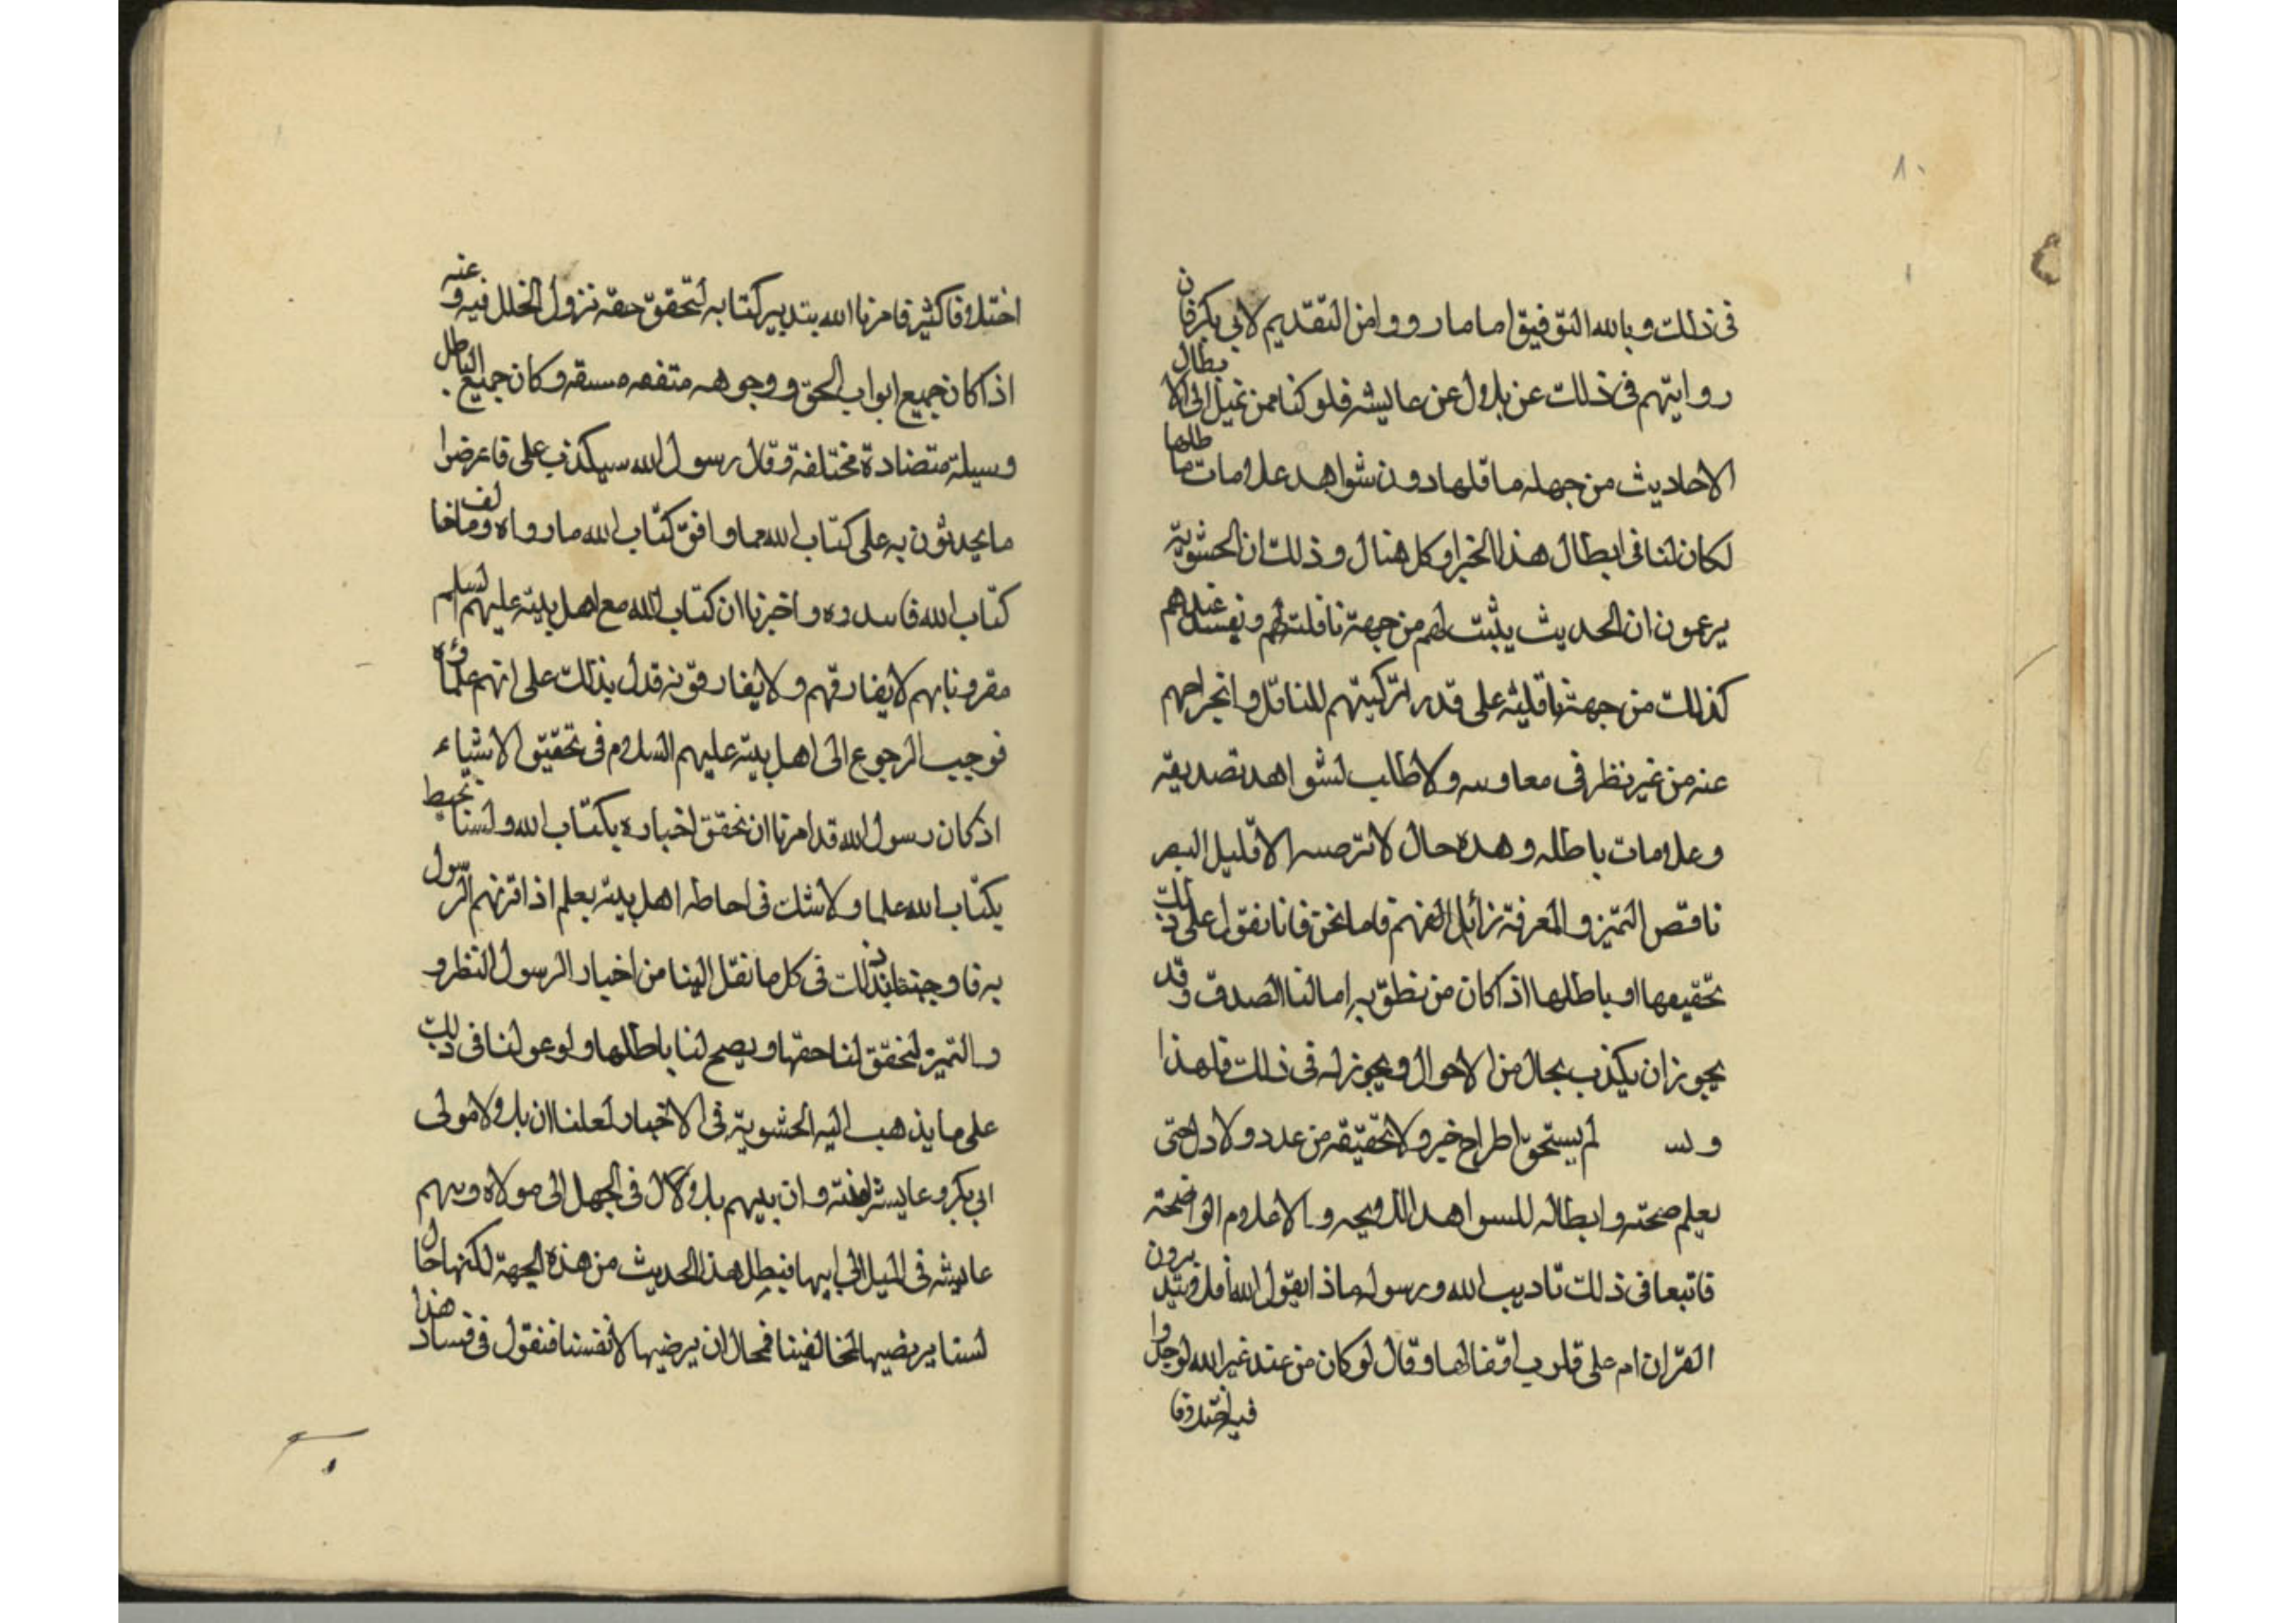 ٨٠
في ذلك وبالله التوفيق اما ما رووا من التقديم لابي بكر فان
روايتهم في ذلك عن بلال عن عايشه فلو كنا ممن نميل الى الابطال
الاحاديث من جهله ما قلها دون شواهد علامات ما طلها
لكان لنا في ابطال هذا الخبر اوكل هنال وذلك ان الحشوية
يرعمون ان الحديث يثبت لهم من جهة ناقلته لهم ويفسد عندهم
كذلك من جهة ناقليه على قدر تزكيتهم للناقل وانجراحهم
عنه من غير نظر في معا ولا طالب لشواهد تصديقه
وعلامات باطله وهذه حال لا الا قليل البصر
ناقص التميز والمعرفة زائل الفهم فاما نحن فانا نقول على ذلك
تحقيقها او باطلها اذا كان من نطق به اما لنا الصدق وقد
يجوز ان يكذب بحال من الاحوال ويجوز له في ذلك فلهذا
ولسـ لم يستحق اطراح خبر ولا تحقيقه من عدد ولا دل حتى
يعلم صحته وابطاله للسواهد اللايحه والاعلام الواضحة
فاتبعا في ذلك تاديب الله ورسوله ماذا يقول الله افلا يتدبرون
القران ام على قلوب اقفالها وقال لو كان من عند غير الله لوجدوا
فيه اختلافا
اختلافا كثير فامرنا الله بتدبير كتابه لتحقق حقه نزول الخلل فيه وعنه
اذ كان جميع ابواب الحق ووجوهه متفقه وكان جميع الباطل
وسيلة متضادة مختلفة وقال رسول الله سيكذب على فاعرضوا
ما يحدثون به على كتاب الله مما وافق كتاب الله ما رواه وما خالف
كتاب الله واخبرنا ان كتاب الله مع اهل بيته عليهم لسلم
مقرونا بهم لا يفارقهم ولا يفارقونه قدل بذلك على انهم علماؤه
فوجب الرجوع الى اهل بيته عليهم السلام في تحقيق الاشياء
اذ كان رسول الله قد امرنا ان نحقق اخباره بكتاب الله ولسنا نحيط
بكتاب الله علما ولا شك في احاطه اهل بيته بعلم اذ اقرنهم الرسول
به فاوجبنا بذلك في كل ما نقل الينا من اخبار الرسول النظر و
والتميز لنحقق لنا حقها ويصح لنا باطلها ولو عولنا في ذلك
على ما يذهب اليه الحشوية في الاخبار لعلنا ان بلالا مولى
ابي بكر وعايشه ابنته وان بلال في الجهل الى مولاه
عايشه في الميل الى ابيها فنبطل هذا الحديث من هذه الجهة لكنها حال
لسنا نرضيها لمخالفينا فمحال ان نرضيها لانفسنا فنقول في فساد هذا